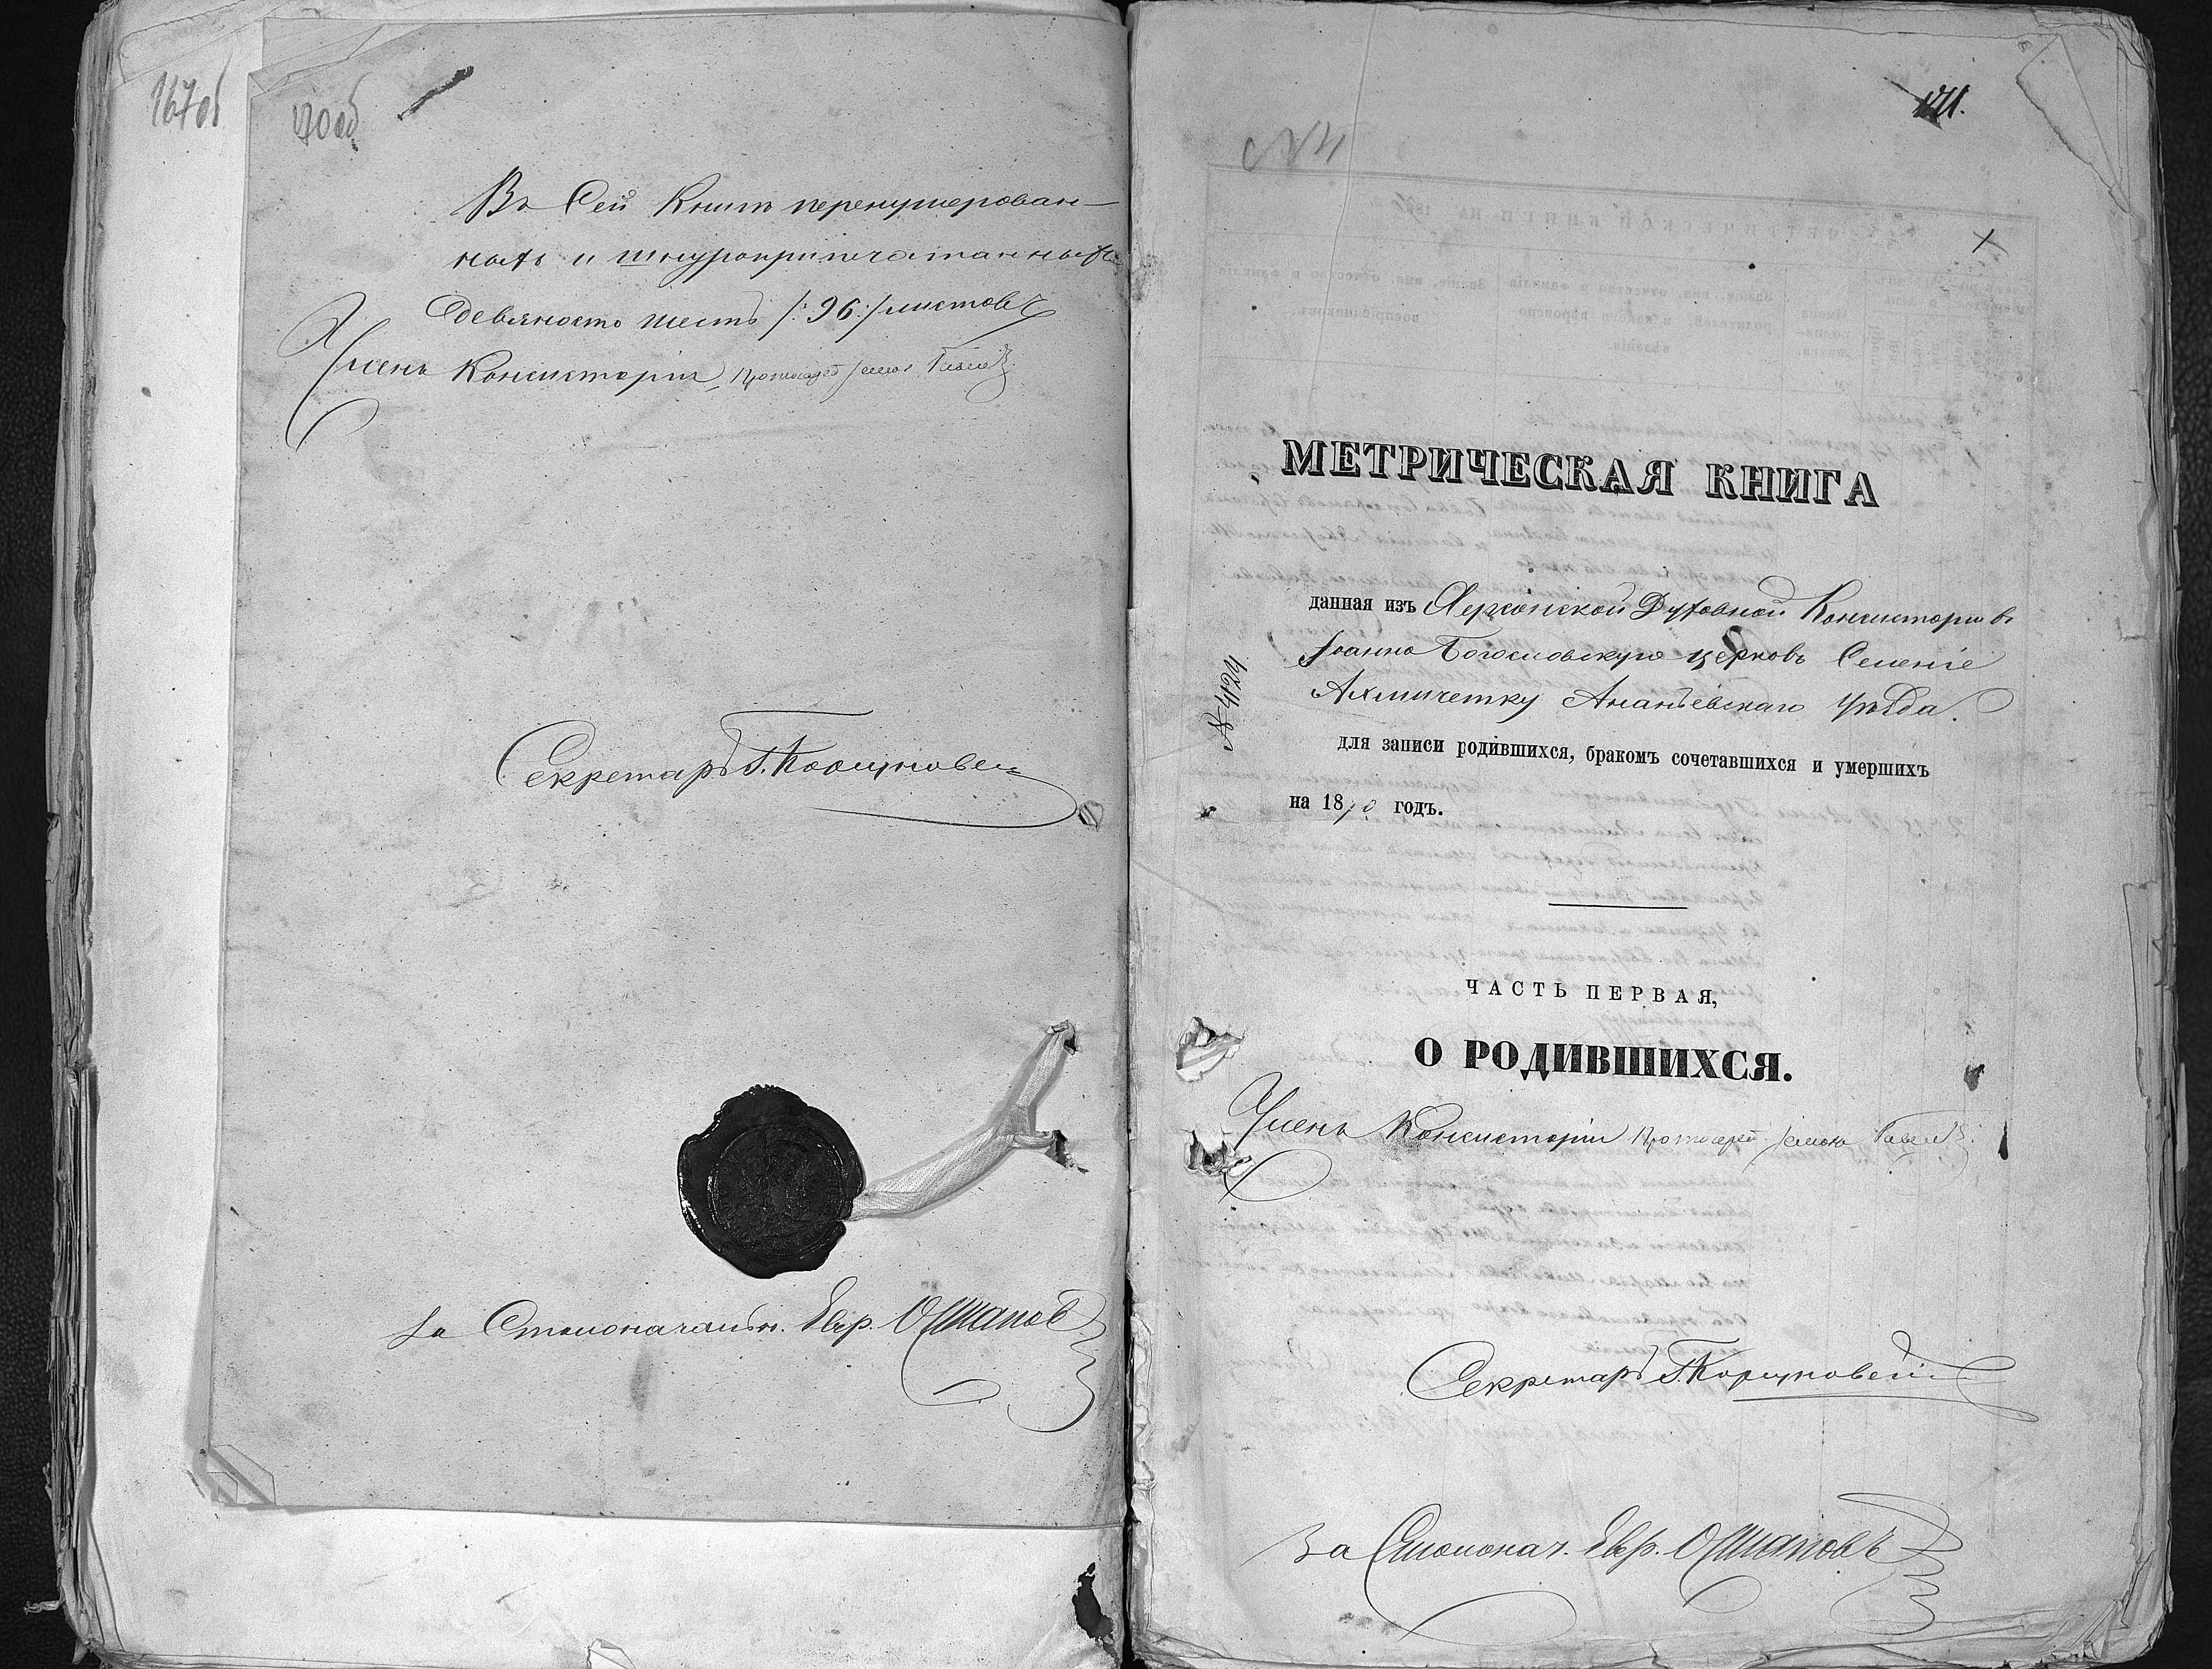 167об
170об
Въ Сей Книгѣ перенумерован-
ныхъ и шнуроприпечатанныхъ
девяносто шесть /:96:/ листовъ
Членъ Консисторіи, Протоіерей
Секретарь Г.
За Столоначальн. Евгр. Ошанов
171.
№4
МЕТРИЧЕСКАЯ КНИГА
данная изъ Херсонской Духовной Консисторіи въ
Іоанно Богословскую церковь Селеніе
Ахмичетку Ананьевскаго Уѣзда.
№ 4124
для записи родившихся, бракомъ сочетавшихся и умершихъ
на 1870 годъ.
ЧАСТЬ ПЕРВАЯ,
О РОДИВШИХСЯ.
Членъ Консисторіи Протоіерей
Секретарь Г.
За Столонач. Евгр. Ошановъ